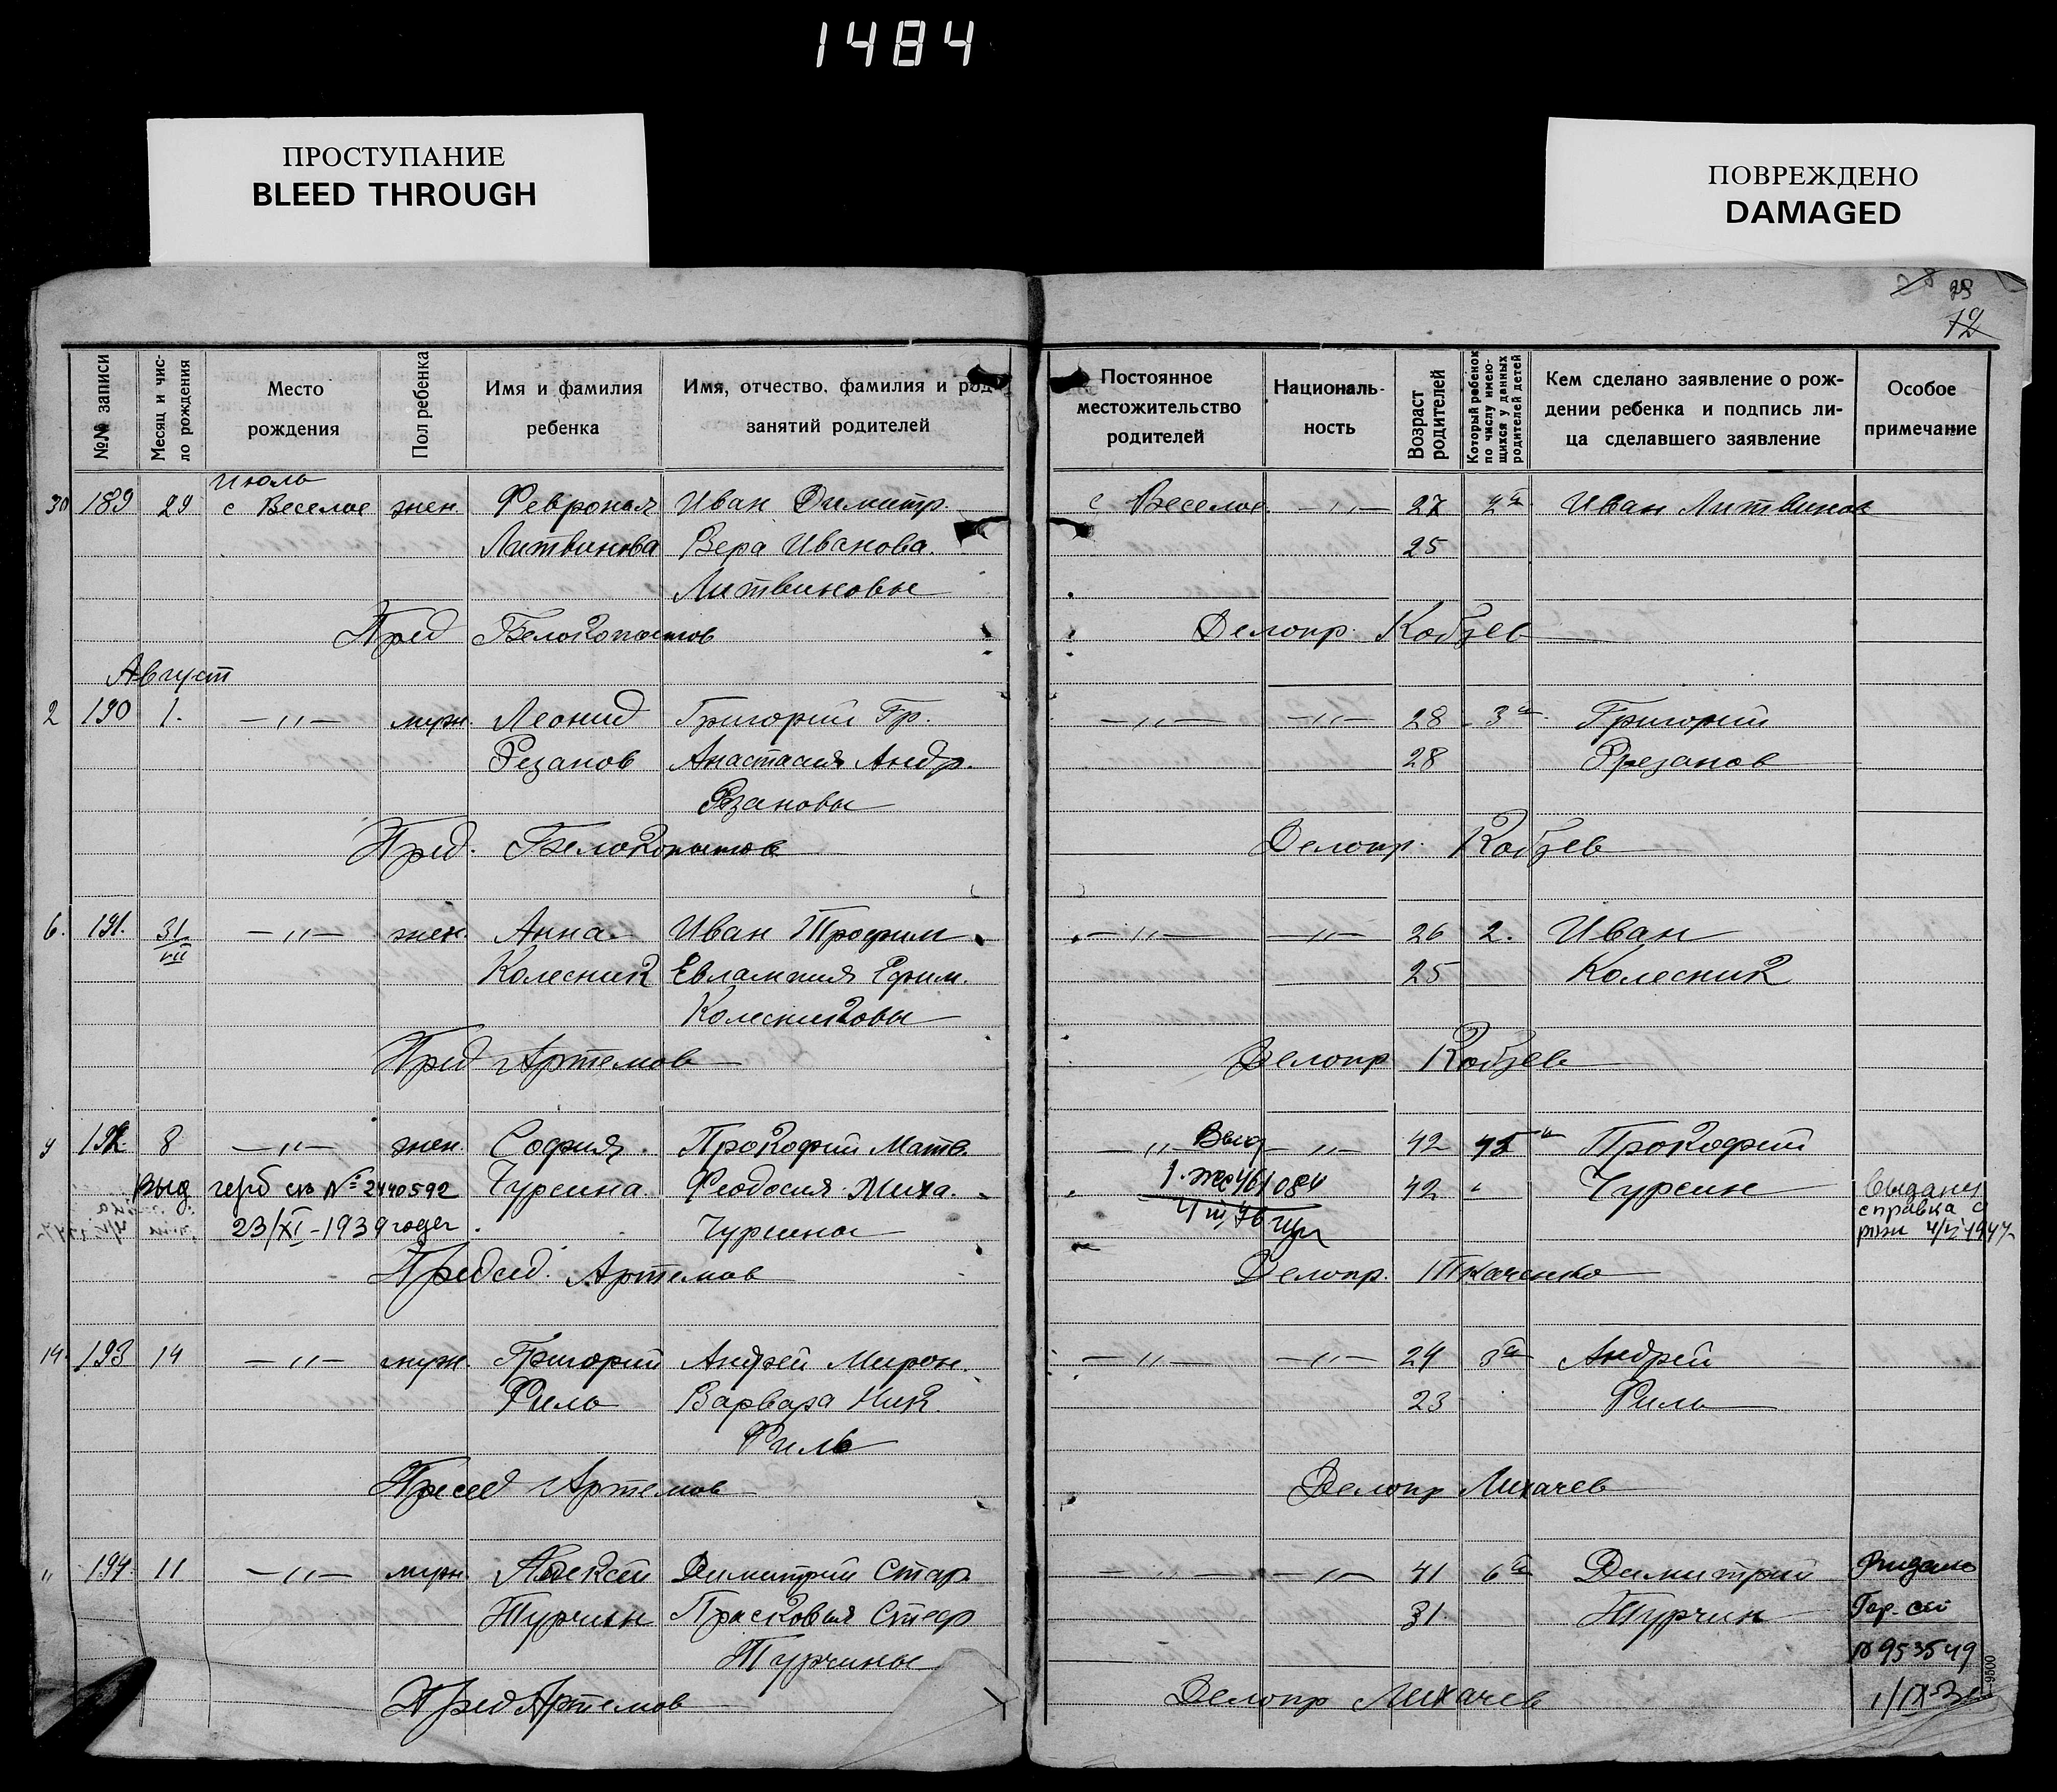 1484
ПРОСТУПАНИЕ
BLEED THROUGH
ПОВРЕЖДЕНО
DAMAGED
28
12
№№ записи
Месяц и чис-
ло рождения
Место
рождения
Пол ребенка
Имя и фамилия
ребенка
Имя, отчество, фамилия и род
занятий родителей
Постоянное
местожительство
родителей
Националь-
ность
Возраст
родителей
Который ребенок
по числу имею-
щихся у данных
родителей детей
Кем сделано заявление о рож-
дении ребенка и подпись ли-
ца сделавшего заявление
Особое
примечание
Июль
30 189 29 с Веселое жен. Феврония Иван Димитр. с Веселое —〃— 27 2й Иван Литвинов
Литвинова Вера Иванова. 25
Литвиновы
Пред Белокопытов Делопр. Кобзев
Август
2 190 1. —〃— муж. Леонид Григорий Гр. —〃— —〃— 28 3й Григорий
Резанов Анастасия Андр. 28 Резанов
Рзановы
Пред. Белокопытов Делопр. Кобзев
6. 191. 31/VII —〃— жен. Анна Иван Трофим —〃— —〃— 26 2. Иван
Колесник Евлампия Ефим. 25 Колесник
Колесниковы
Пред Артемов Делопр Кобзев
192 8 —〃— жен. София. Прокофий Матв. —〃— Выд —〃— 42 Прокофий
Выд герб св №2440592 Чурсина. Феодосия Миха. 42 Чурсин
23/XI-1939 года Чурсины
Выдана
справка о
рож 1947
Председ. Артемов Делопр. Ткаченко
14. 193 14 —〃— муж. Григорий Андрей Мирон. —〃— —〃— 24 3й Андрей
Риль Варвара Ник. 23 Риль
Риль
Пресед Артемов Делопр Лихачев
〃 194. 11 —〃— муж. Алексей Димитрий Стар. —〃— —〃— 41 6й Димитрий
Турчин Прасковья Стеф 31. Турчин
Турчины
Видано
Гер. св
№953549
Пред Артемов Делопр Лихачев